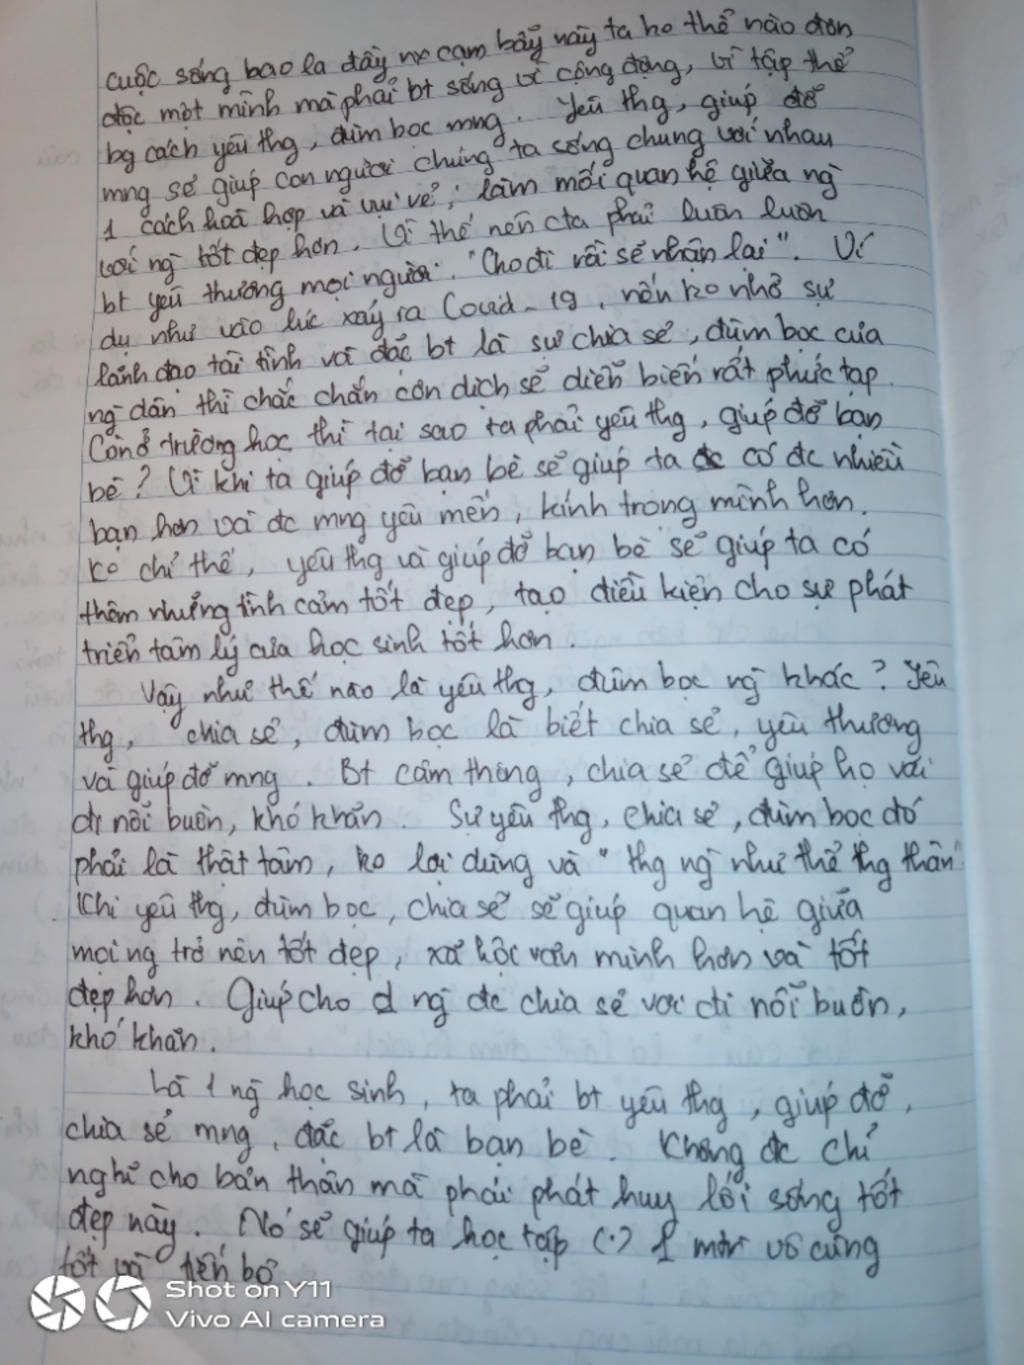 cuộc sống bao la đầy nx cạm bẫy này ta ko thể nào đơn
độc một mình mà phải bt sống vì cộng đồng, vì tập thể
bg cách yêu thg, đùm bọc mng. Yêu thg, giúp đỡ
mng sẽ giúp con người chúng ta sống chung với nhau
1 cách hoà hợp và vui vẻ; làm mối quan hệ giữa ng
với ng tốt đẹp hơn. Vì thế nên cta phải luôn luôn
bt yêu thương mọi người. "Cho đi rồi sẽ nhận lại". Ví
dụ như vào lúc xảy ra Covid-19, nếu ko nhờ sự
lãnh đạo tài tình và đặc bt là sự chia sẻ, đùm bọc của
ng dân thì chắc chắn cơn dịch sẽ diễn biến rất phức tạp.
Còn ở trường học thì tại sao ta phải yêu thg, giúp đỡ bạn
bè? Vì khi ta giúp đỡ bạn bè sẽ giúp ta có đc nhiều
bạn hơn và đc mng yêu mến, kính trọng mình hơn.
Ko chỉ thế, yêu thg và giúp đỡ bạn bè sẽ giúp ta có
thêm những tình cảm tốt đẹp, tạo điều kiện cho sự phát
triển tâm lý của học sinh tốt hơn.
Vậy như thế nào là yêu thg, đùm bọc ng khác? Yêu
thg, chia sẻ, đùm bọc là biết chia sẻ, yêu thương
và giúp đỡ mng. Bt cảm thông, chia sẻ để giúp họ vơi
đi nỗi buồn, khó khăn. Sự yêu thg, chia sẻ, đùm bọc đó
phải là thật tâm, ko lợi dụng và "thg ng như thể thg thân"
Khi yêu thg, đùm bọc, chia sẻ sẽ giúp quan hệ giữa
mọi ng trở nên tốt đẹp, xã hộc văn minh hơn và tốt
đẹp hơn. Giúp cho ng đc chia sẻ vơi đi nỗi buồn,
khó khăn.
Là 1 ng học sinh, ta phải bt yêu thg, giúp đỡ,
chia sẻ mng, đặc bt là bạn bè. Không đc chỉ
nghĩ cho bản thân mà phải phát huy lối sống tốt
đẹp này. Nó sẽ giúp ta học tập (.) 1 mtr vô cùng
tốt và tiến bộ
Shot on Y11
Vivo AI camera